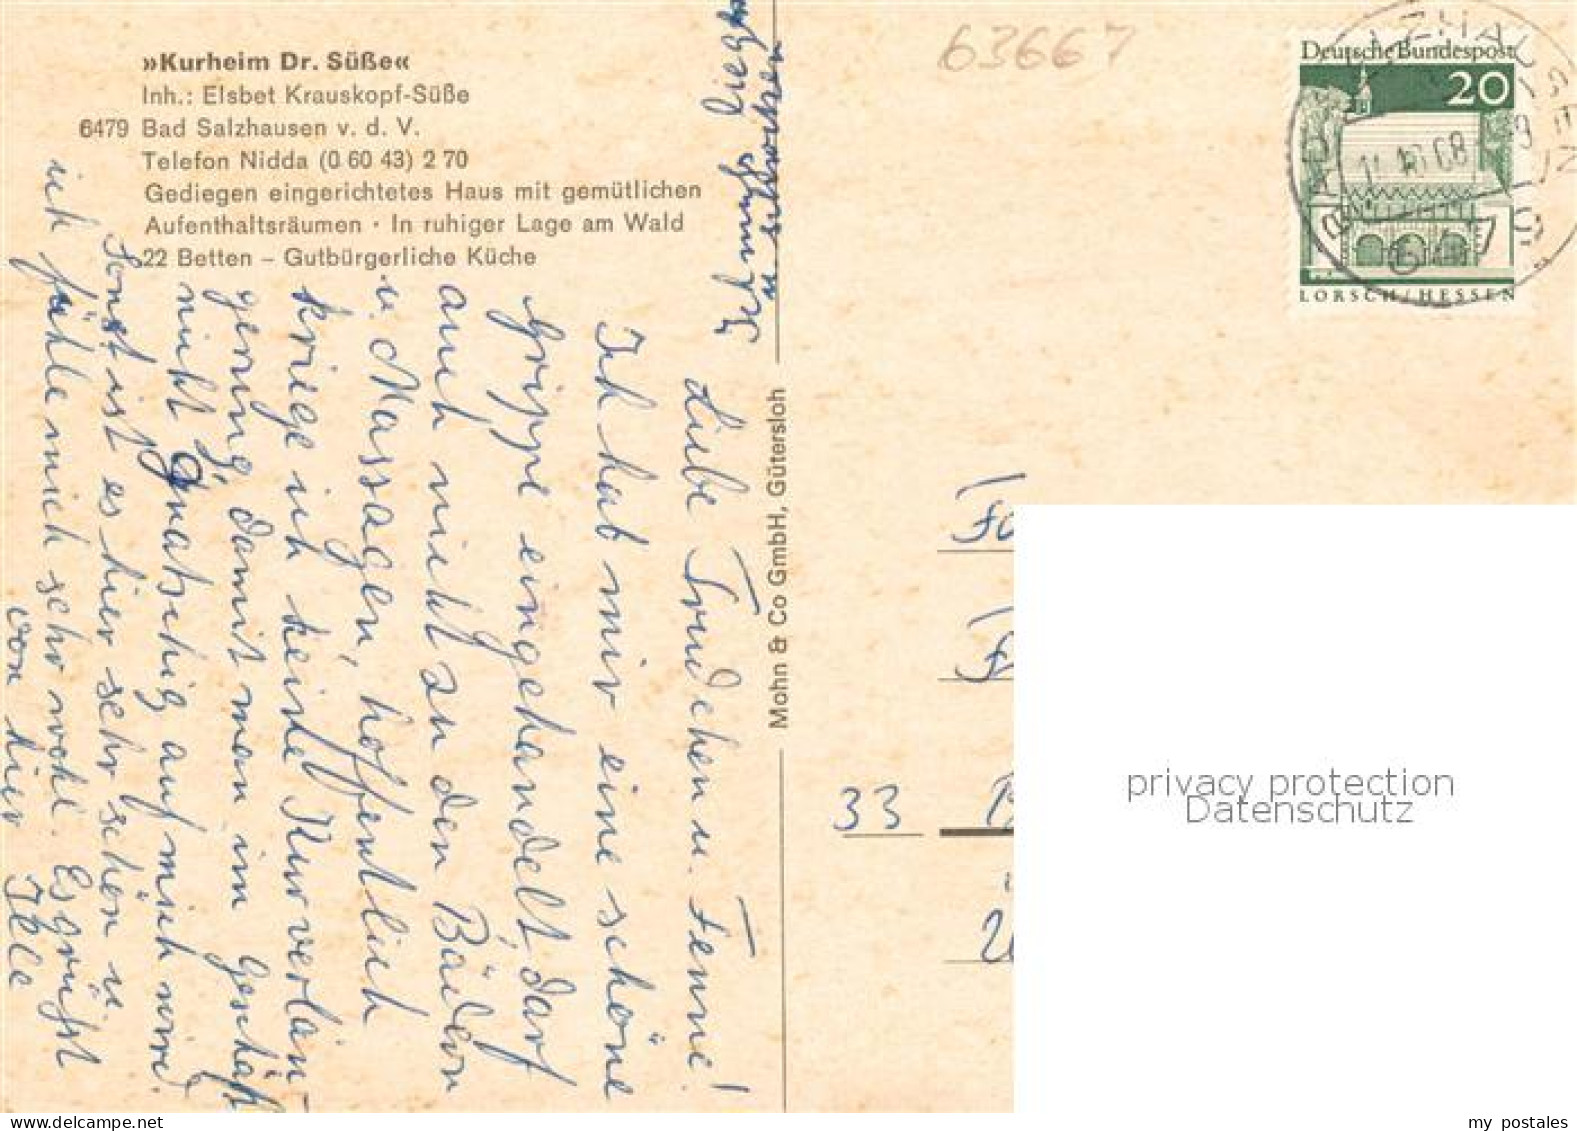 »Kurheim Dr. Süße«
Inh.: Elsbet Krauskopf-Süße
6479 Bad Salzhausen v. d. V.
Telefon Nidda (0 60 43) 2 70
Gediegen eingerichtetes Haus mit gemütlichen
Aufenthaltsräumen · In ruhiger Lage am Wald
22 Betten – Gutbürgerliche Küche
Liebe Trudchen u. Fenne!
Ich hab mir eine schöne
Grippe eingehandelt, darf
auch nicht zu den Bädern
u. Massagen, hoffentlich
kriege ich keine Kurverlän-
gerung, damit man im Geschäft
nicht gnatschig auf mich wird.
Sonst ist es hier sehr schön u.
ich fühle mich sehr wohl. Es grüßt
von hier Ille
Ich muß liegen
u. schwitzen
Mohn & Co GmbH, Gütersloh
63667
Deutsche Bundespost
20
LORSCH/HESSEN
BAD SALZHAUSEN
6479
33
privacy protection
Datenschutz
my postales